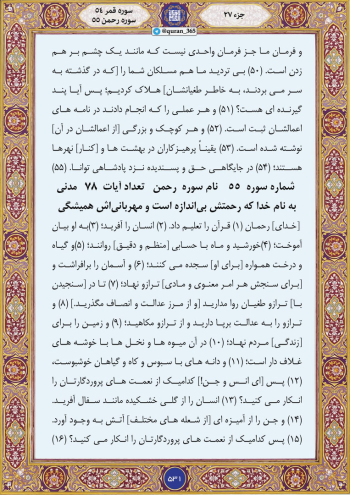 جزء ۲۷
سوره قمر ۵٤
سوره رحمن ۵۵
@quran_365
و فرمان ما جز فرمان واحدی نیست که مانند یک چشم بر هم
زدن است. (۵۰) بی تردید ما هم مسلکان شما را [که در گذشته به
سر می بردند، به خاطر طغیانشان] هلاک کردیم؛ پس آیا پند
گیرنده ای هست؟ (۵۱) و هر عملی را که انجام دادند در نامه های
اعمالشان ثبت است. (۵۲) و هر کوچک و بزرگی [از اعمالشان در آن]
نوشته شده است. (۵۳) یقیناً پرهیزکاران در بهشت ها و [کنار] نهرها
هستند؛ (۵۴) در جایگاهی حق و پسندیده نزد پادشاهی توانا. (۵۵)
شماره سوره ۵۵ نام سوره رحمن تعداد آیات ۷۸ مدنی
به نام خدا که رحمتش بی‌اندازه است و مهربانی‌اش همیشگی
[خدای] رحمان (۱) قرآن را تعلیم داد. (۲) انسان را آفرید؛ (۳)به او بیان
آموخت؛ (۴)خورشید و ماه با حسابی [منظم و دقیق] روانند؛ (۵)و گیاه
و درخت همواره [برای او] سجده می کنند؛ (۶) و آسمان را برافراشت و
[برای سنجش هر امر معنوی و مادی] ترازو نهاد؛ (۷) تا در [سنجیدن
با] ترازو طغیان روا مدارید [و از مرز عدالت و انصاف مگذرید.] (۸) و
ترازو را به عدالت برپا دارید و از ترازو مکاهید؛ (۹) و زمین را برای
[زندگی] مردم نهاد؛ (۱۰) در آن میوه ها و نخل ها با خوشه های
غلاف دار است؛ (۱۱) و دانه های با سبوس و کاه و گیاهان خوشبوست،
(۱۲) پس [ای انس و جن!] کدامیک از نعمت های پروردگارتان را
انکار می کنید؟ (۱۳) انسان را از گلی خشکیده مانند سفال آفرید.
(۱۴) و جن را از آمیزه ای [از شعله های مختلف] آتش به وجود آورد.
(۱۵) پس کدامیک از نعمت های پروردگارتان را انکار می کنید؟ (۱۶)
۵۳۱